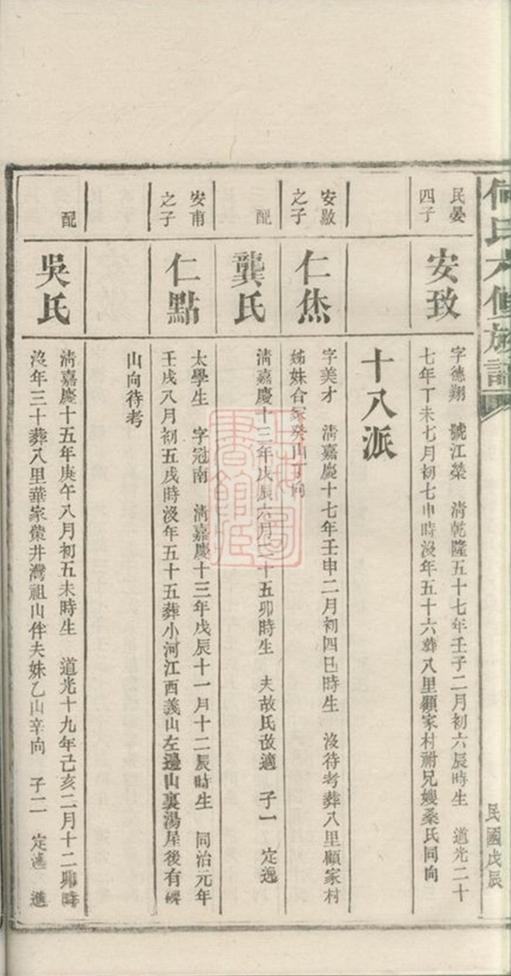 何氏六修族譜
民國戊辰
民晏四子
安致
字德翔 號江榮 清乾隆五十七年壬子二月初六辰時生 道光二十
七年丁未七月初七申時沒年五十六葬八里顧家村祔兄嫂桑氏同向
十八派
安敭之子
仁烋
字美才 清嘉慶十七年壬申二月初四巳時生 沒待考葬八里顧家村
姊妹合冢癸山丁向
配
龔氏
清嘉慶十三年戊辰六月二十五卯時生 夫故氏改適 子一 定逸
安甫之子
仁點
太學生 字冠南 清嘉慶十三年戊辰十一月十二辰時生 同治元年
壬戌八月初五戌時沒年五十五葬小河江西義山左邊山裏湯屋後有
山向待考
配
吳氏
清嘉慶十五年庚午八月初五未時生 道光十九年己亥二月十二卯時
沒年三十葬八里華家 井灣祖山伴夫妹乙山辛向 子二 定 進